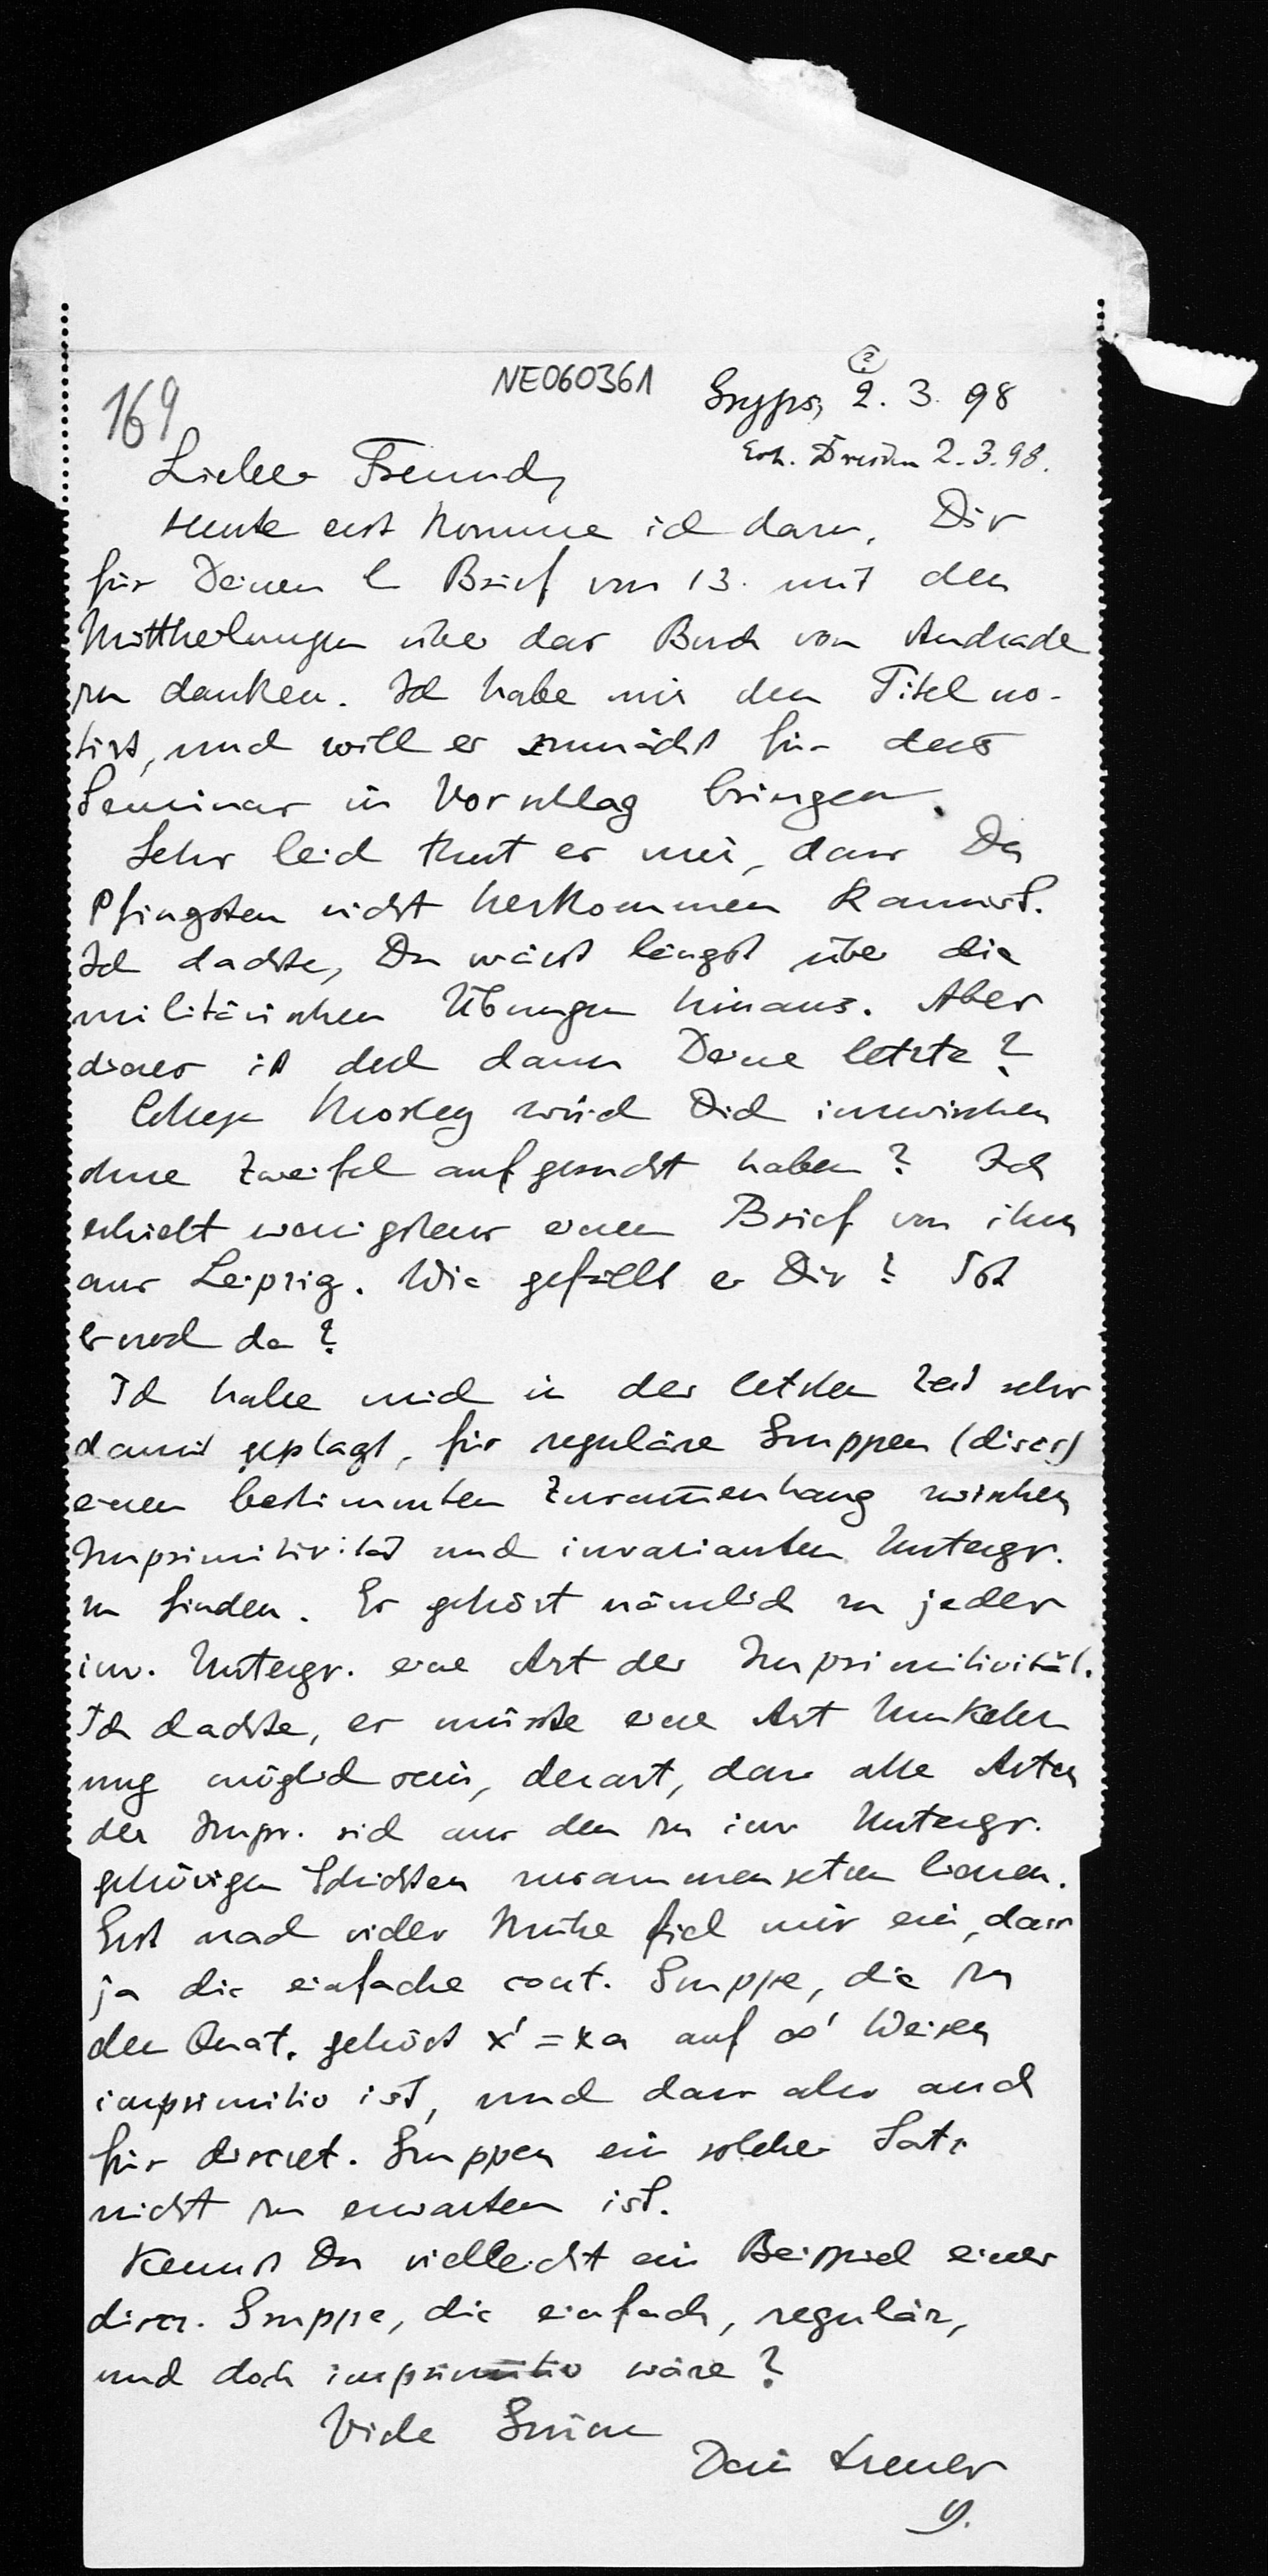 NE060361
169
Gryps, 2. 3. 98
(?)
Erh. Dresden 2.3.98.
Lieber Freund,
Heute erst komme ich dazu, Dir
für Deinen l Brief vom 13. mit den
Mittheilungen über das Buch von Andrade
zu danken. Ich habe mir den Titel no-
tirt, und will es zunächst für das
Seminar in Vorschlag bringen.
Sehr leid thut es mir, dass Du
Pfingsten nicht herkommen kannst.
Ich dachte, Du wärst längst über die
militärischen Übungen hinaus. Aber
dieses ist doch dann Deine letzte?
College Morley wird Dich inzwischen
ohne Zweifel aufgesucht haben? Ich
erhielt wenigstens einen Brief von ihm
aus Leipzig. Wie gefällt er Dir? Ist
er noch da?
Ich habe mich in der letzten Zeit sehr
damit geplagt, für reguläre Gruppen (discr)
einen bestimmten Zusammenhang zwischen
Imprimitivität und invarianten Untergr.
zu finden. Es gehört nämlich zu jeder
inv. Untergr. eine Art der Imprimitivität.
Ich dachte, es müsste eine Art Umkehr
ung möglich sein, derart, dass alle Arten
der Impr. sich aus den zu inv Untergr.
gehörigen Schichten zusammensetzen liessen.
Erst nach vieler Mühe fiel mir ein, dass
ja die einfache cont. Gruppe, die zu
den Quat. gehört x' = xa auf ∞' Weisen
imprimitiv ist, und dass also auch
für discret. Gruppen ein solcher Satz
nicht zu erwarten ist.
Kennst Du vielleicht ein Beispiel einer
discr. Gruppe, die einfach, regulär,
und doch imprimitiv wäre?
Viele Grüsse
Dein treuer